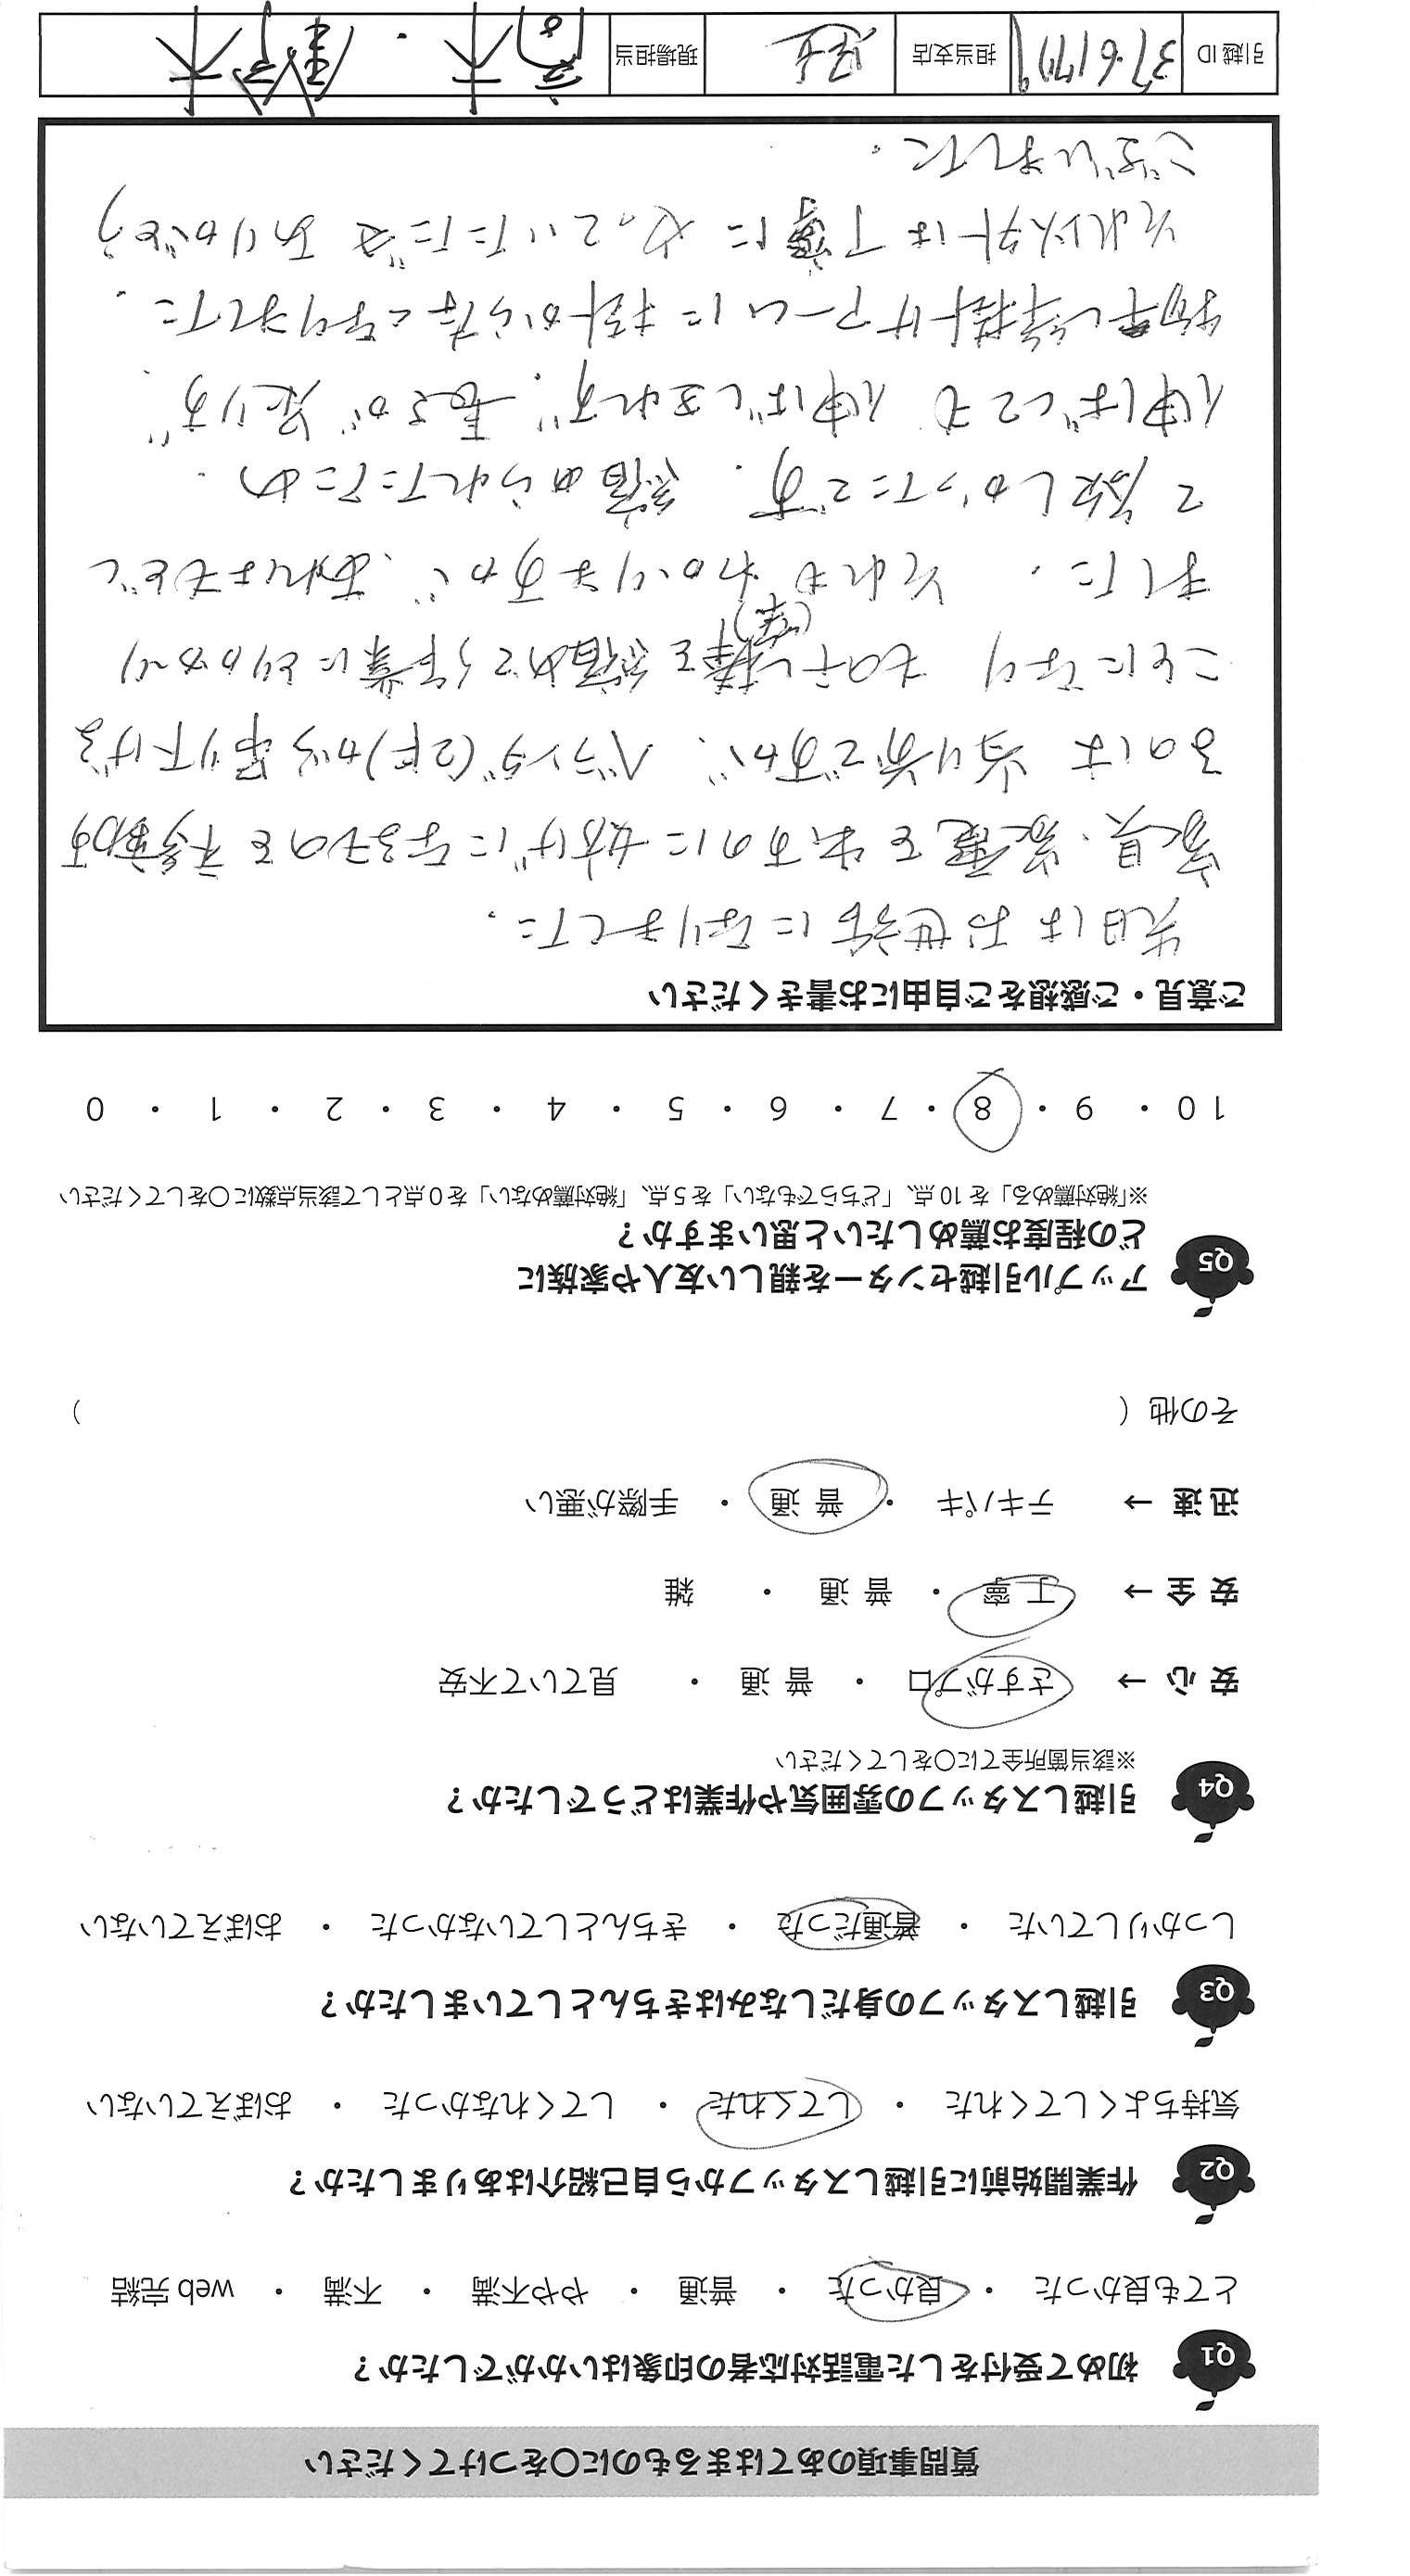 質問事項のあてはまるものに〇をつけてください
Q1 初めて受付をした電話対応者の印象はいかがでしたか?
とても良かった ・ 良かった ・ 普通 ・ やや不満 ・ 不満 ・ web 完結
Q2 作業開始前に引越しスタッフから自己紹介はありましたか?
気持ちよくしてくれた ・ してくれた ・ してくれなかった ・ おぼえていない
Q3 引越しスタッフの身だしなみはきちんとしていましたか?
しっかりしていた ・ 普通だった ・ きちんとしていなかった ・ おぼえていない
Q4 引越しスタッフの雰囲気や作業はどうでしたか?
※該当箇所全てに〇をしてください
安 心 → さすがプロ ・ 普 通 ・ 見ていて不安
安 全 → 丁 寧 ・ 普 通 ・ 雑
迅 速 → テキパキ ・ 普 通 ・ 手際が悪い
その他 ( )
Q5 アップル引越センターを親しい友人や家族に
どの程度お薦めしたいと思いますか?
※「絶対薦める」を 10 点、「どちらでもない」を 5 点、「絶対薦めない」を 0 点として該当点数に〇をしてください
10 ・ 9 ・ 8 ・ 7 ・ 6 ・ 5 ・ 4 ・ 3 ・ 2 ・ 1 ・ 0
ご意見・ご感想をご自由にお書きください
先日はお世話になりました。
家具・家電を出すのに妨げになるものを移動す
るのは当り前ですが、ベランダ(2F)から吊り下げる
ことになり もの干し(竿)を縮めて作業にとりかかり
ました。 それもわかりますが、あれはもどし
て欲しかったです。縮められてたため、
伸ばしても 伸ばしきれず、長さが足りず、
物干し竿掛けアームに掛からなくなりました。
それ以外は丁寧にやっていただき ありがとう
ございました。
引越 ID 担当支店 厚木 現場担当 高木・